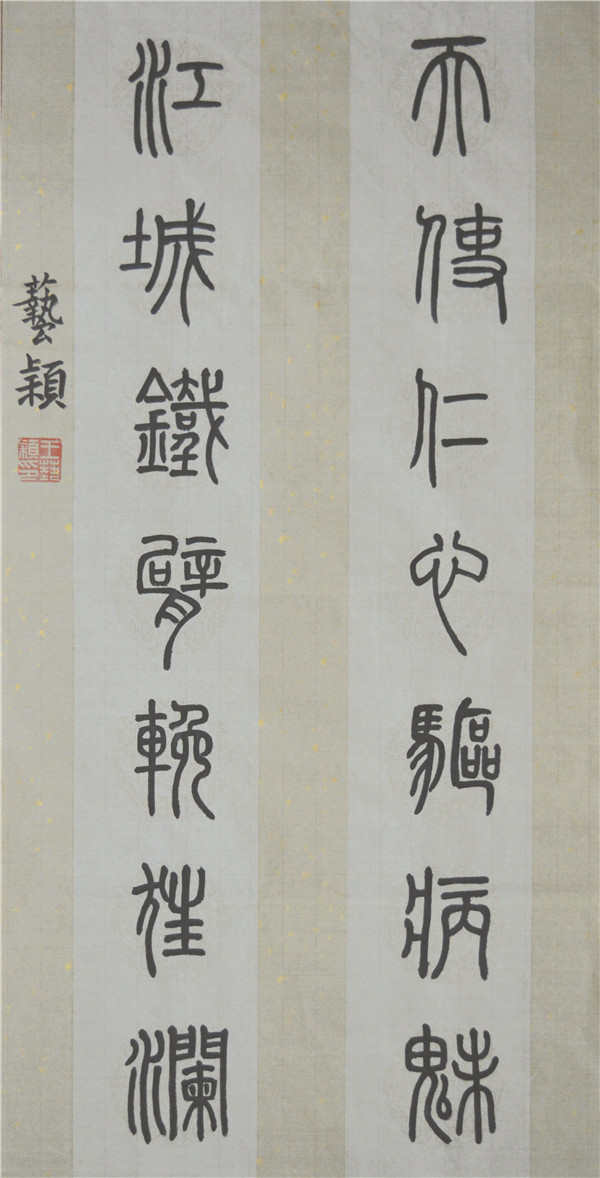 天使仁心驅病魅
江城鐵臂輓狂瀾
藝穎
王藝穎印